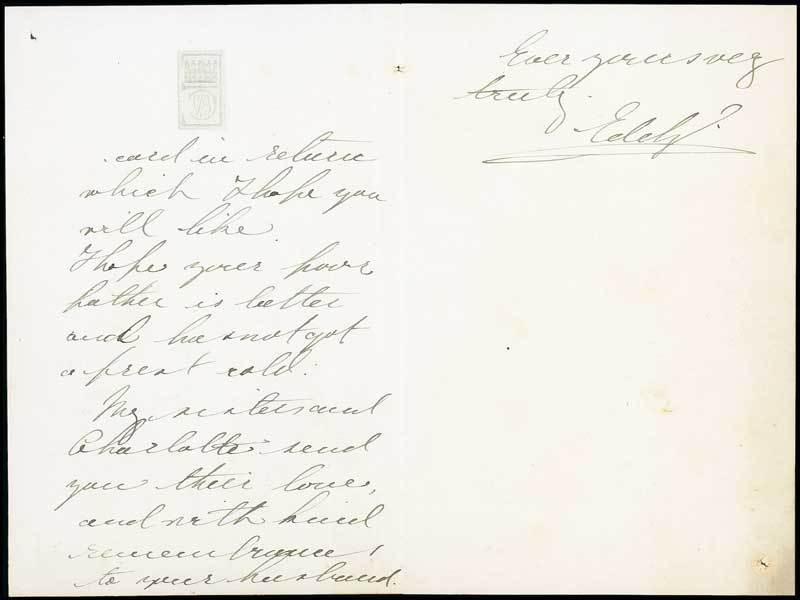 card in return
which I hope you
will like.
I hope your poor
father is better
and has not got
a fresh cold.
My sisters and
Charlotte send
you their love,
and with kind
remembrance,
to your husband.
Ever yours very
truly.
Eddy.